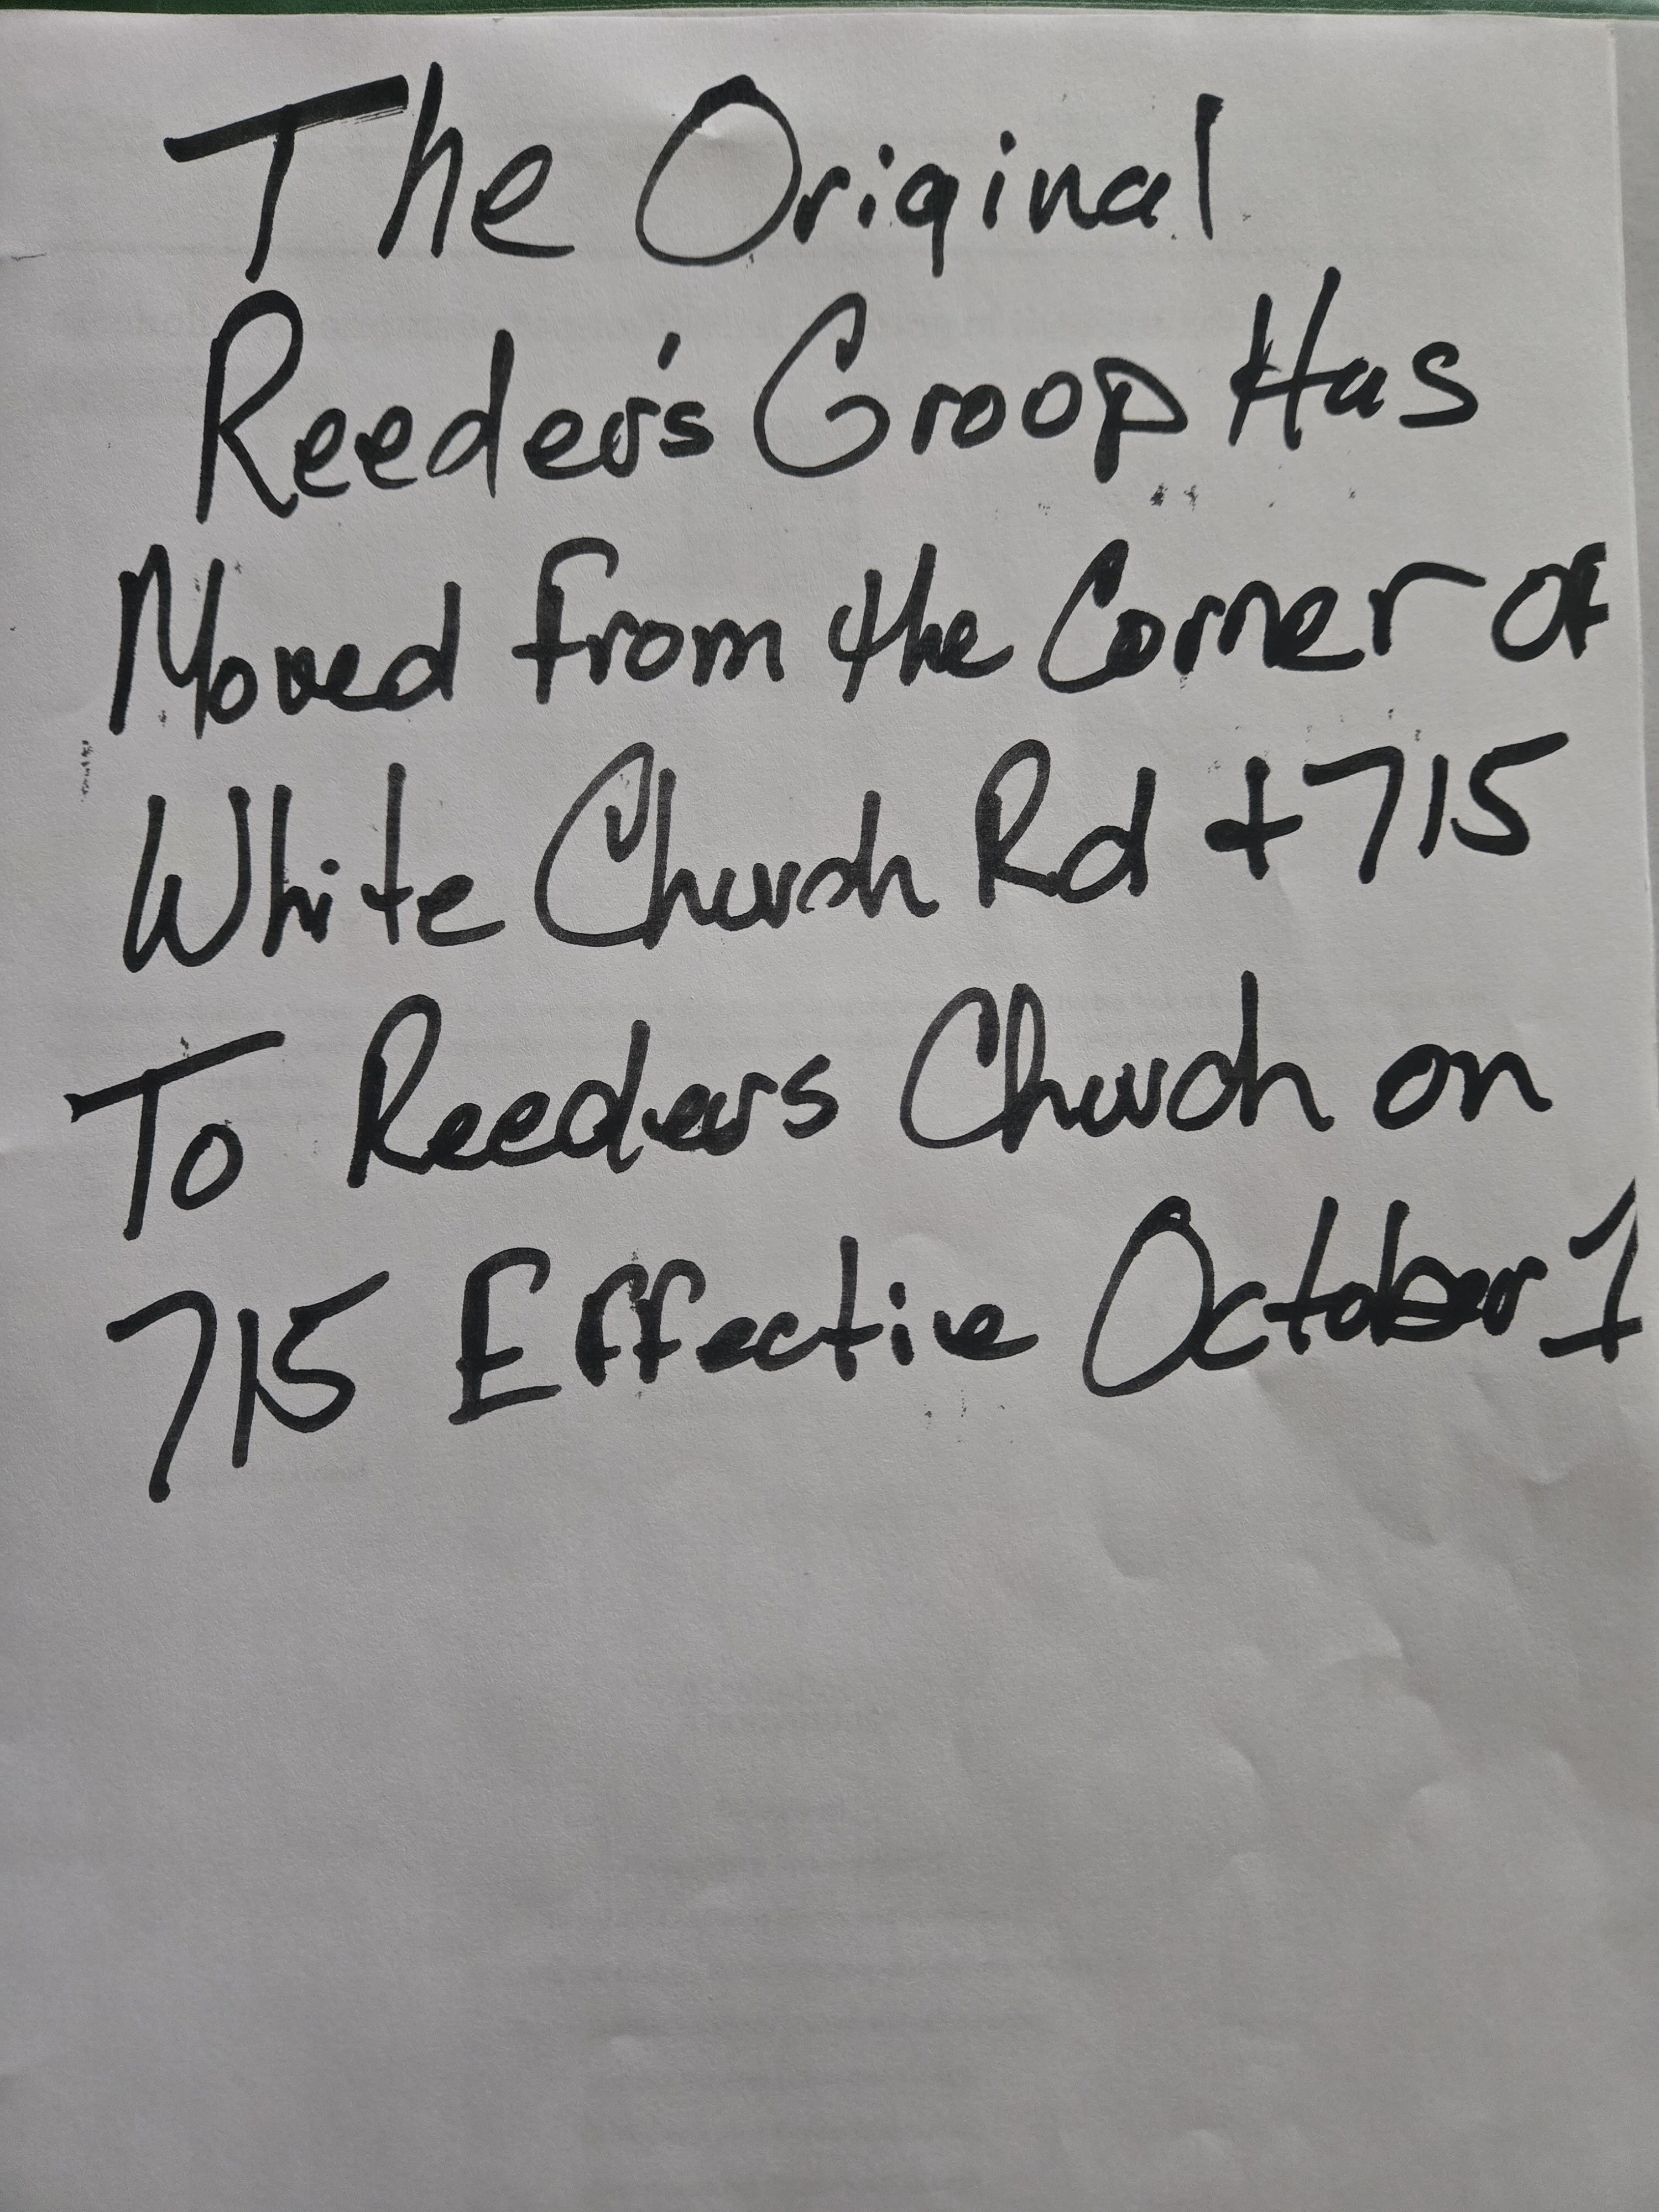 The Original
Reeder's Groop Has
Moved from the Corner of
White Church Rd + 715
To Reeders Church on
715 Effective October 1